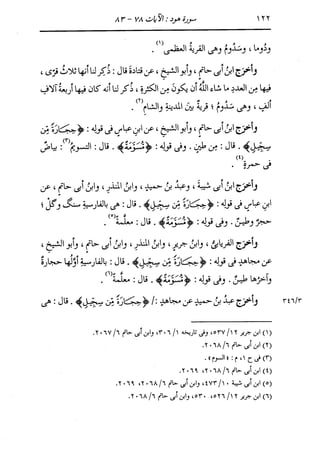 ١٢٢ سورة هود : الآيات ٧٨ - ٨٣
ودوما ، وسدوم وهى القرية العظمى(١).
وأخرج ابن أبى حاتم ، وأبو الشيخ ، عن قتادة قال : ذكر لنا أنها ثلاث قرى ،
فيها من العدد ما شاء الله أن يكون من الكثرة ، ذكر لنا أنه كان فيها أربعة آلاف
ألف ، وهى سدوم ؛ قرية بين المدينة والشام(٢).
وأخرج ابن أبى حاتم ، وأبو الشيخ ، عن ابن عباس فى قوله : ﴿حِجَارَةً مِّن
سِجِّيلٍ﴾ . قال : من طين . وفى قوله : ﴿مُّسَوَّمَةً﴾ . قال : التسويم(٣) : بياض
فى حمرة(٤).
وأخرج ابن أبى شيبة ، وعبد بن حميد ، وابن المنذر ، وابن أبى حاتم ، عن
ابن عباس فى قوله : ﴿حِجَارَةً مِّن سِجِّيلٍ﴾ . قال : هى بالفارسية سنگ وگل ؛
حجر وطين . وفى قوله : ﴿مُّسَوَّمَةً﴾ . قال : معلمة(٥).
وأخرج الفريابى ، وابن جرير ، وابن المنذر ، وابن أبى حاتم ، وأبو الشيخ ،
عن مجاهد فى قوله : ﴿حِجَارَةً مِّن سِجِّيلٍ﴾ . قال : بالفارسية أولها حجارة
وآخرها طين . وفى قوله : ﴿مُّسَوَّمَةً﴾ . قال : معلمة(٦).
٣٤٦/٣ وأخرج عبد بن حميد عن مجاهد :/ ﴿حِجَارَةً مِّن سِجِّيلٍ﴾ . قال : هى
(١) ابن جرير ١٢/ ٥٣٧، وفى تاريخه ١/ ٣٠٦، وابن أبى حاتم ٦/ ٢٠٦٧.
(٢) ابن أبى حاتم ٦/ ٢٠٦٨.
(٣) فى ح ١، م : « السوم ».
(٤) ابن أبى حاتم ٦/ ٢٠٦٨، ٢٠٦٩.
(٥) ابن أبى شيبة ١٠/ ٤٧٣، وابن أبى حاتم ٦/ ٢٠٦٨، ٢٠٦٩.
(٦) ابن جرير ١٢/ ٥٢٦، ٥٣٠، وابن أبى حاتم ٦/ ٢٠٦٨.